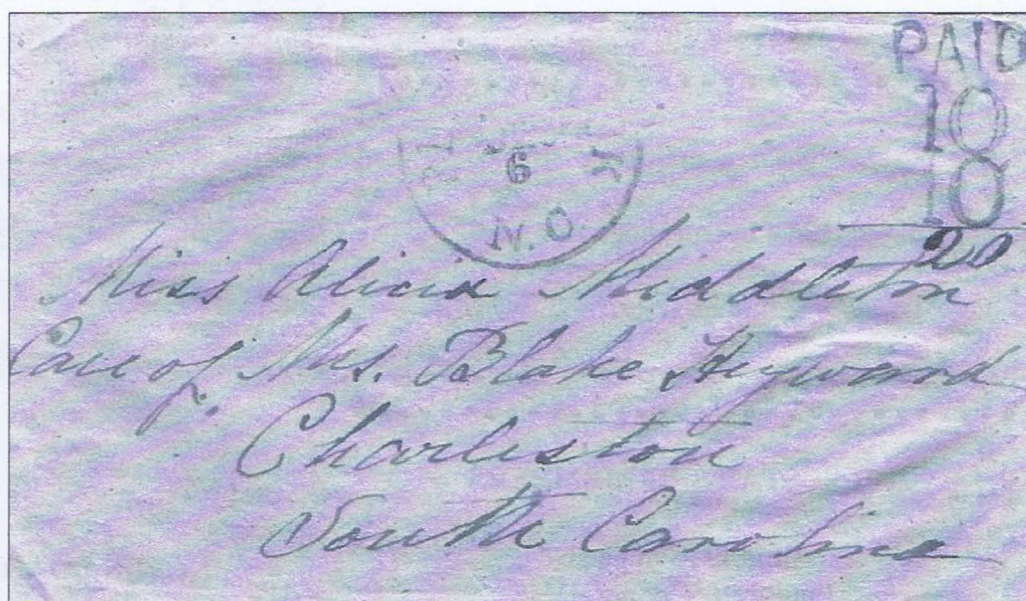 PAID
10
10
20
6
K
N.O.
Miss Alicia Middleton
Care of Mrs. Blake Heyward
Charleston
South Carolina